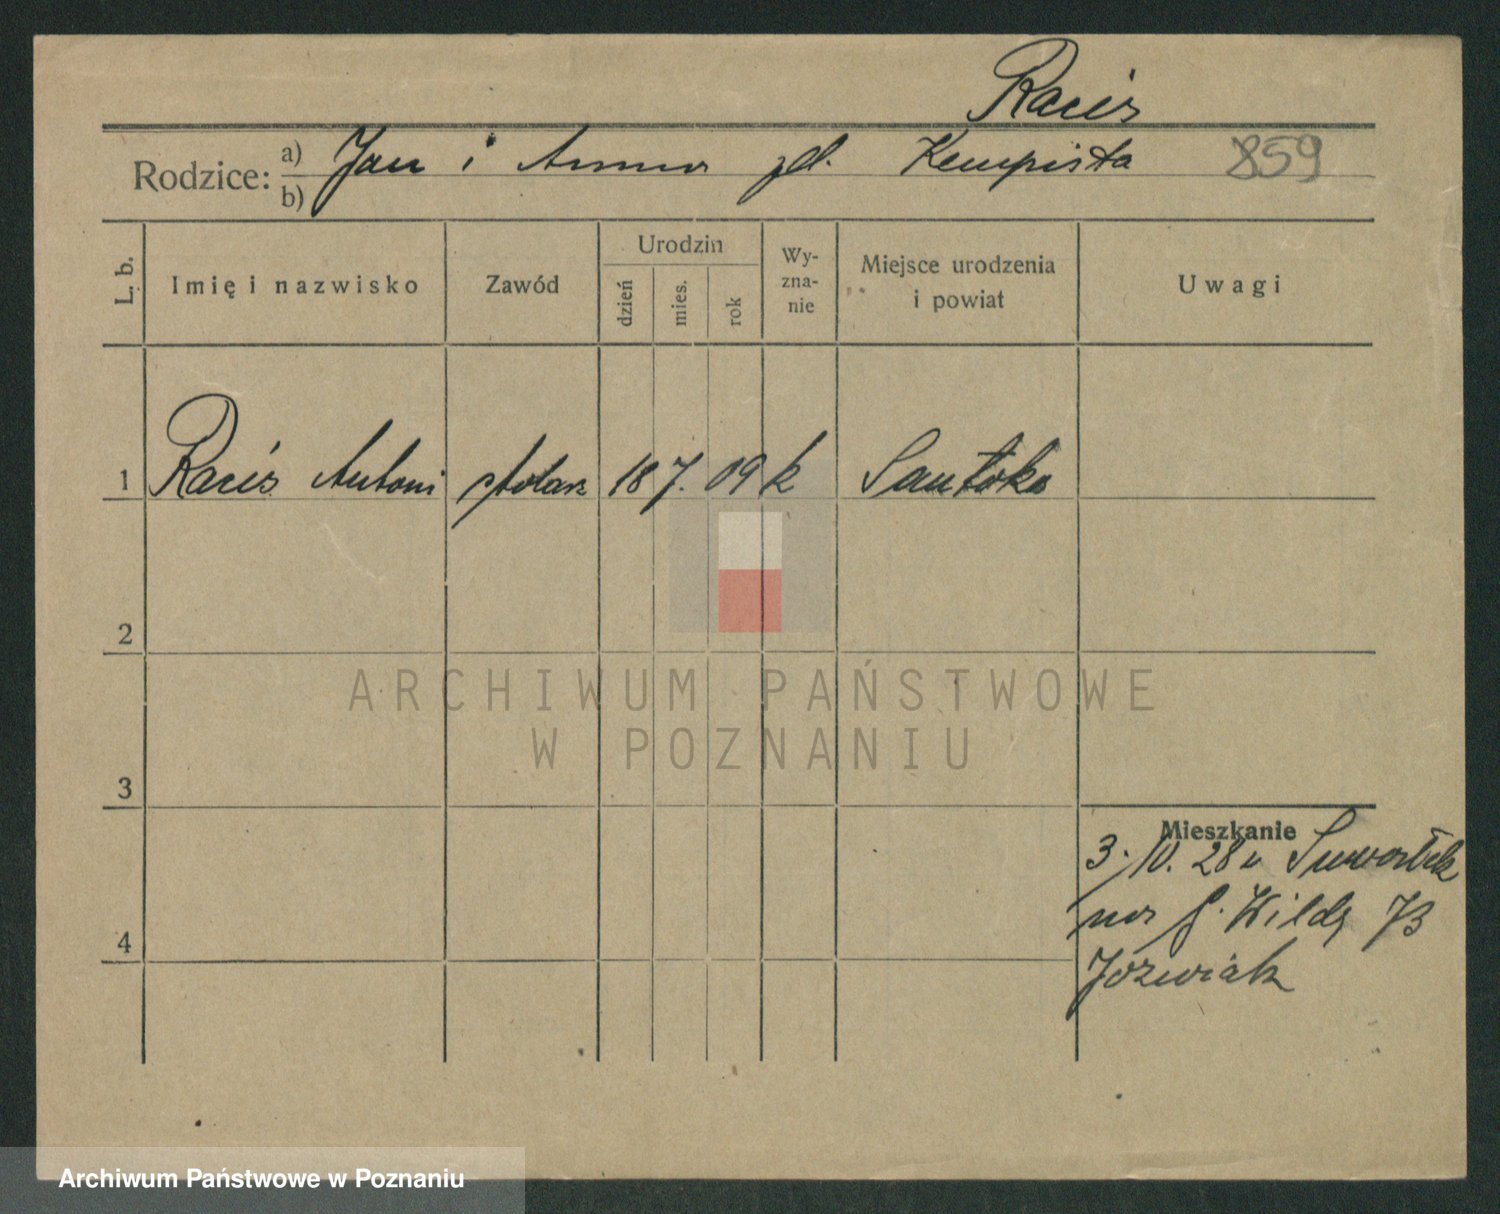 Racis
Rodzice: a) Jan i Anna zd. Kempista 859
b)
L. b. Imię i nazwisko Zawód Urodzin dzień mies. rok Wy-zna-nie Miejsce urodzenia i powiat Uwagi
1 Racis Antoni stolarz 18 7. 09 k
2
3
4
Mieszkanie
3. 10. 28
na G. Wildę 73
Józwiak
ARCHIWUM PAŃSTWOWE
W POZNANIU
Archiwum Państwowe w Poznaniu